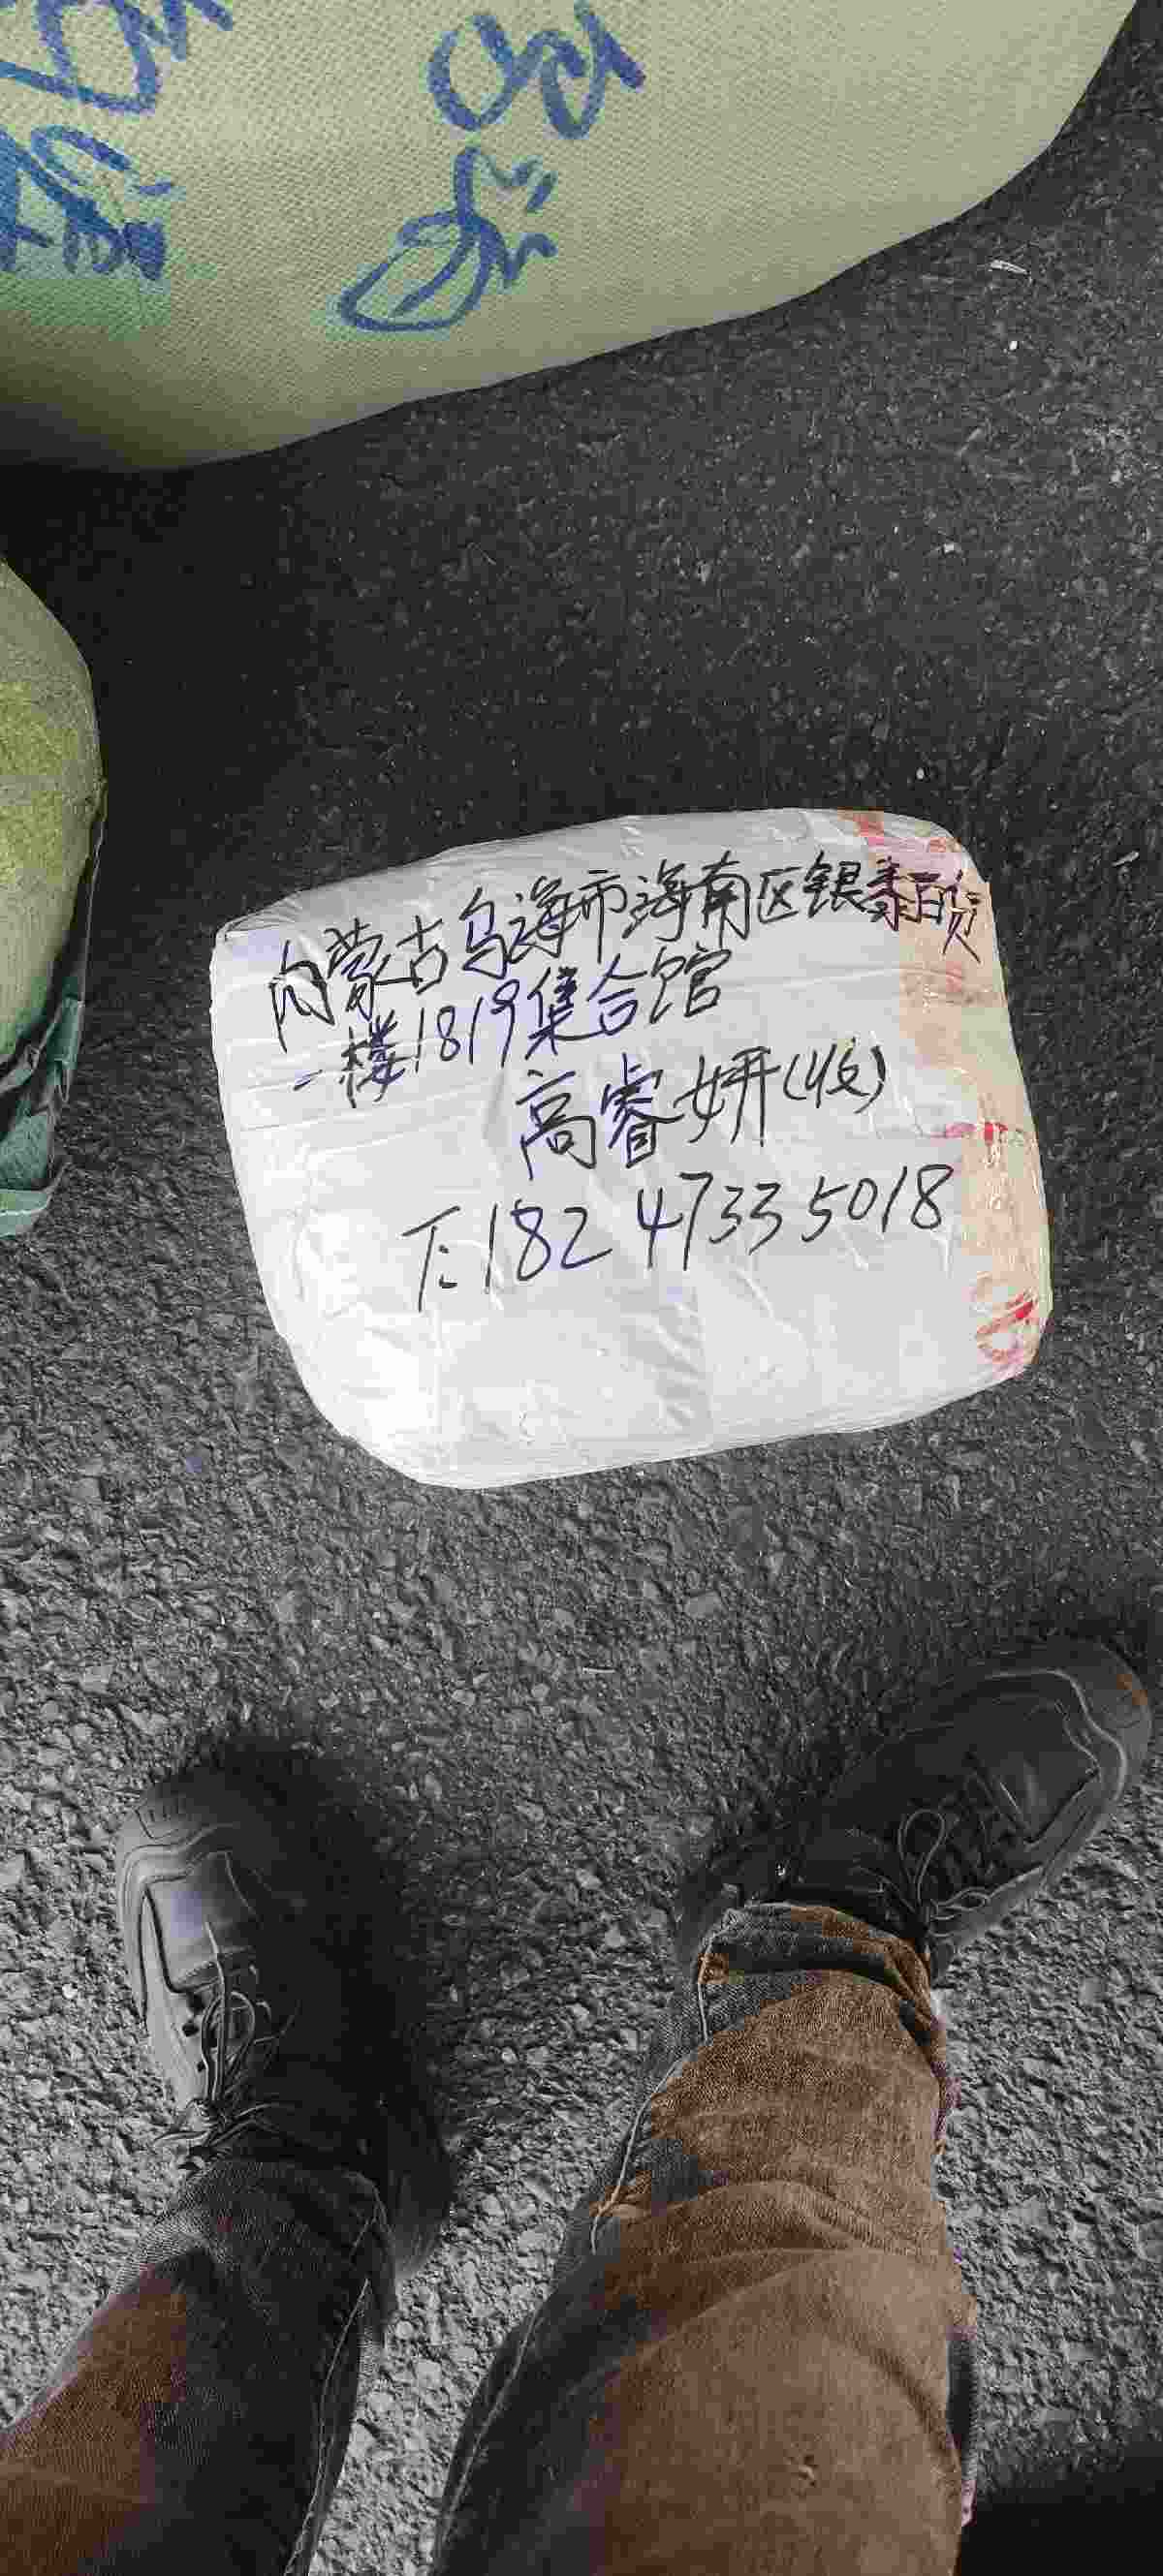 内蒙古乌海市海南区银泰百货
一楼1819集合馆
高睿妍(收)
T:182 4733 5018